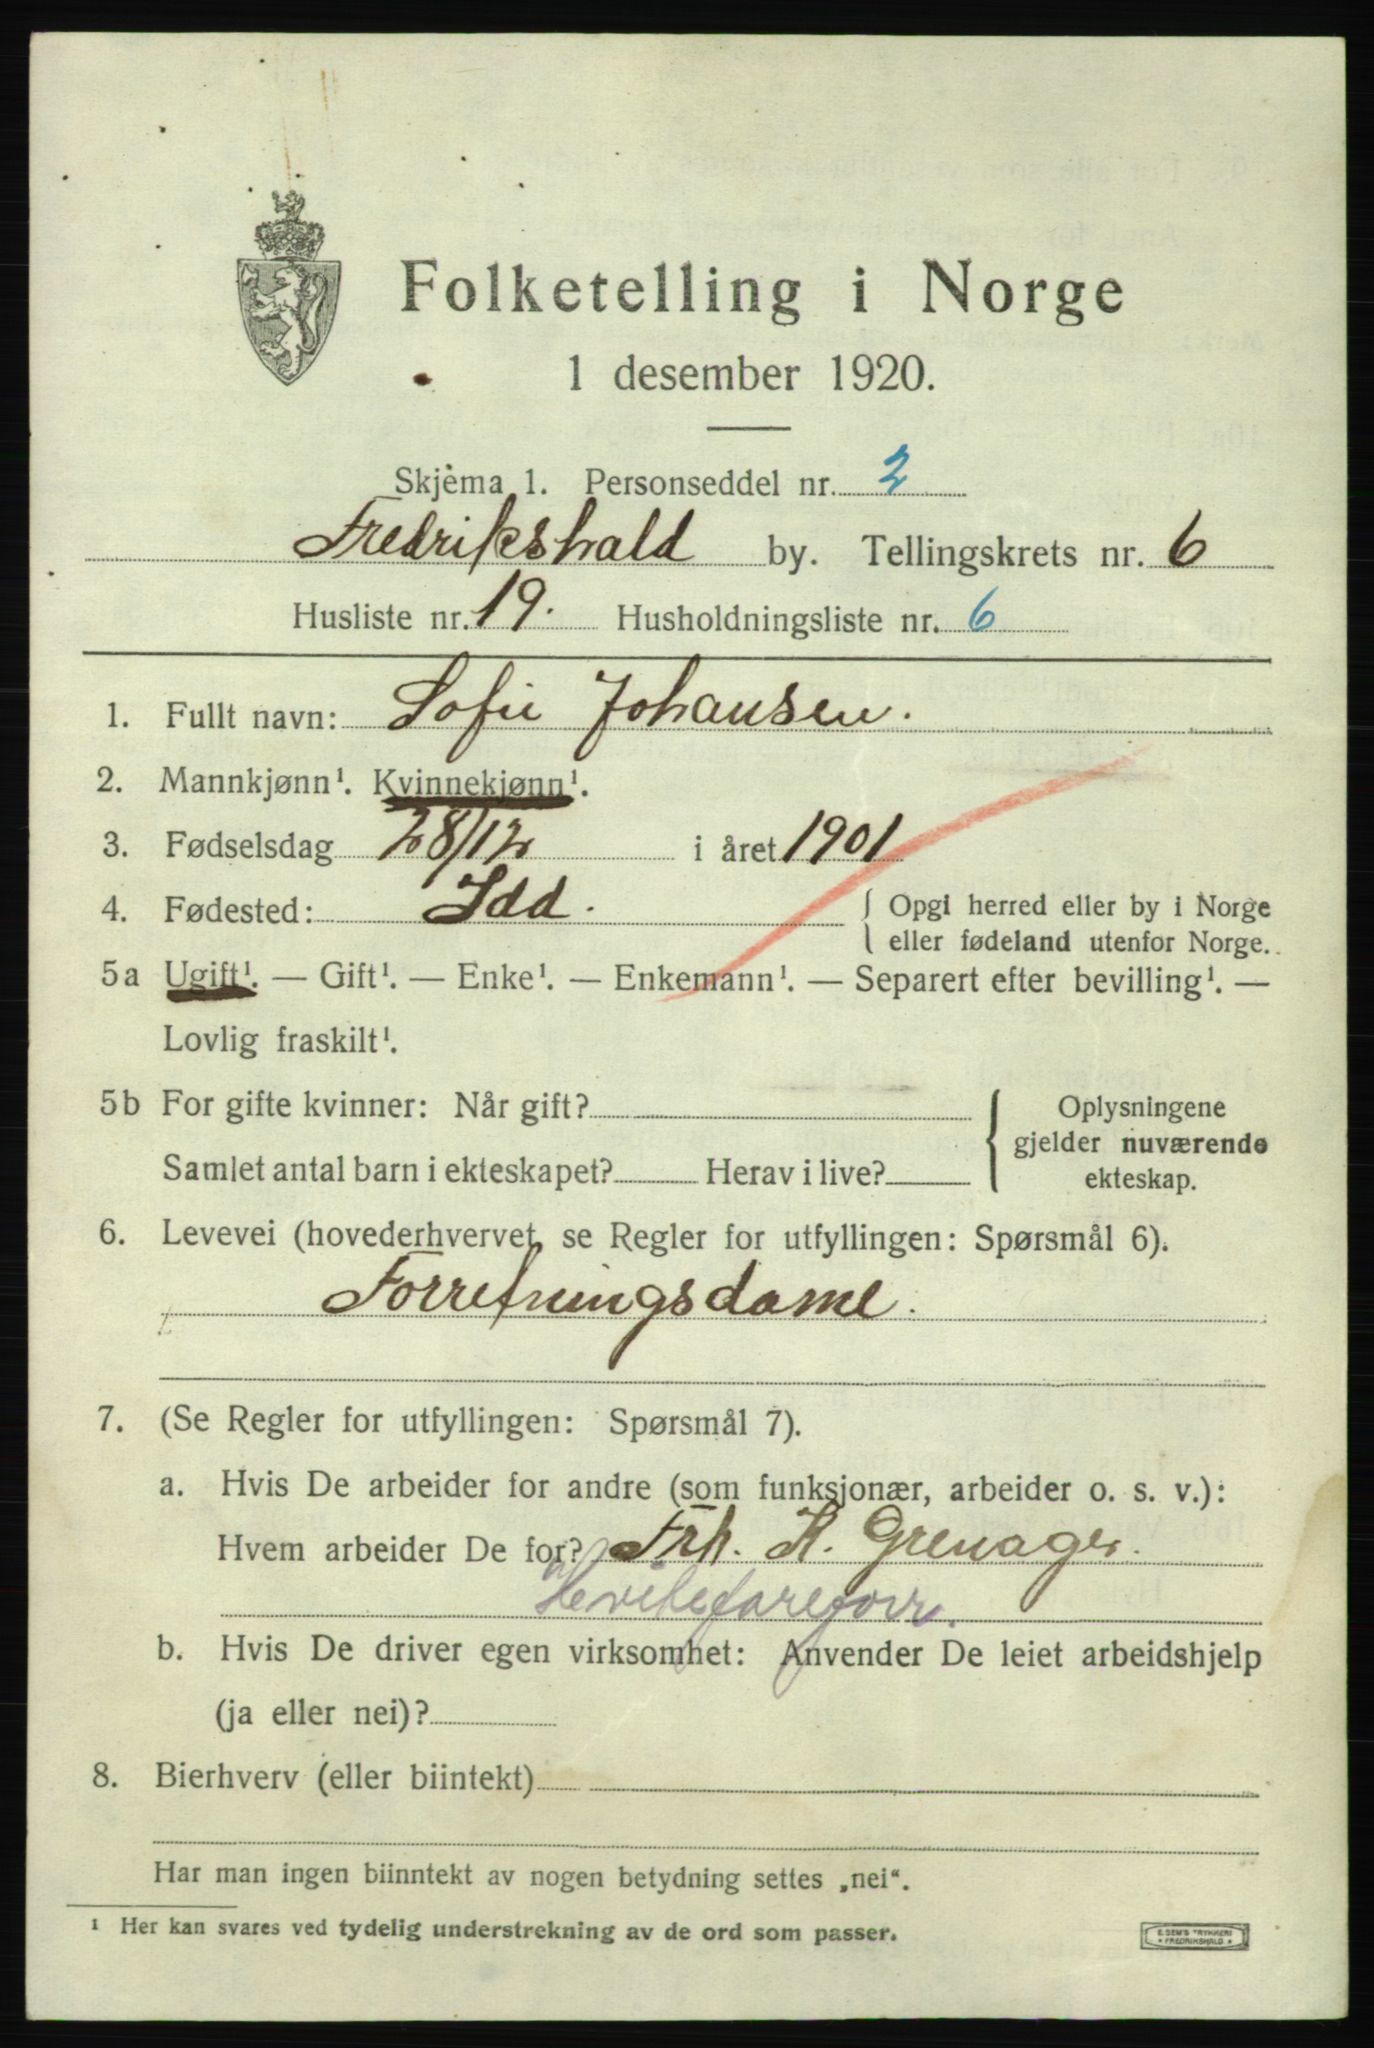 Folketelling i Norge
1 desember 1920.
Skjema 1. Personseddel nr. 2
Fredrikshald by. Tellingskrets nr. 6
Husliste nr. 19. Husholdningsliste nr. 6
1. Fullt navn: Sofie Johansen.
2. Mannkjønn¹. Kvinnekjønn¹.
3. Fødselsdag 28/12 i året 1901
4. Fødested: Idd. { Opgi herred eller by i Norge
eller fødeland utenfor Norge.
5a Ugift¹. — Gift¹. — Enke¹. — Enkemann¹. — Separert efter bevilling¹. —
Lovlig fraskilt¹.
5b For gifte kvinner: Når gift?
Samlet antal barn i ekteskapet? Herav i live?
{ Oplysningene
gjelder nuværende
ekteskap.
6. Levevei (hovederhvervet, se Regler for utfyllingen: Spørsmål 6).
Forretningsdame.
7. (Se Regler for utfyllingen: Spørsmål 7).
a. Hvis De arbeider for andre (som funksjonær, arbeider o. s. v.):
Hvem arbeider De for? Frk. H. Grenager.
Hvitefareforr.
b. Hvis De driver egen virksomhet: Anvender De leiet arbeidshjelp
(ja eller nei)?
8. Bierhverv (eller biintekt)
Har man ingen biinntekt av nogen betydning settes „nei“.
¹ Her kan svares ved tydelig understrekning av de ord som passer.
E. SEM'S TRYKKERI
• FREDRIKSHALD •